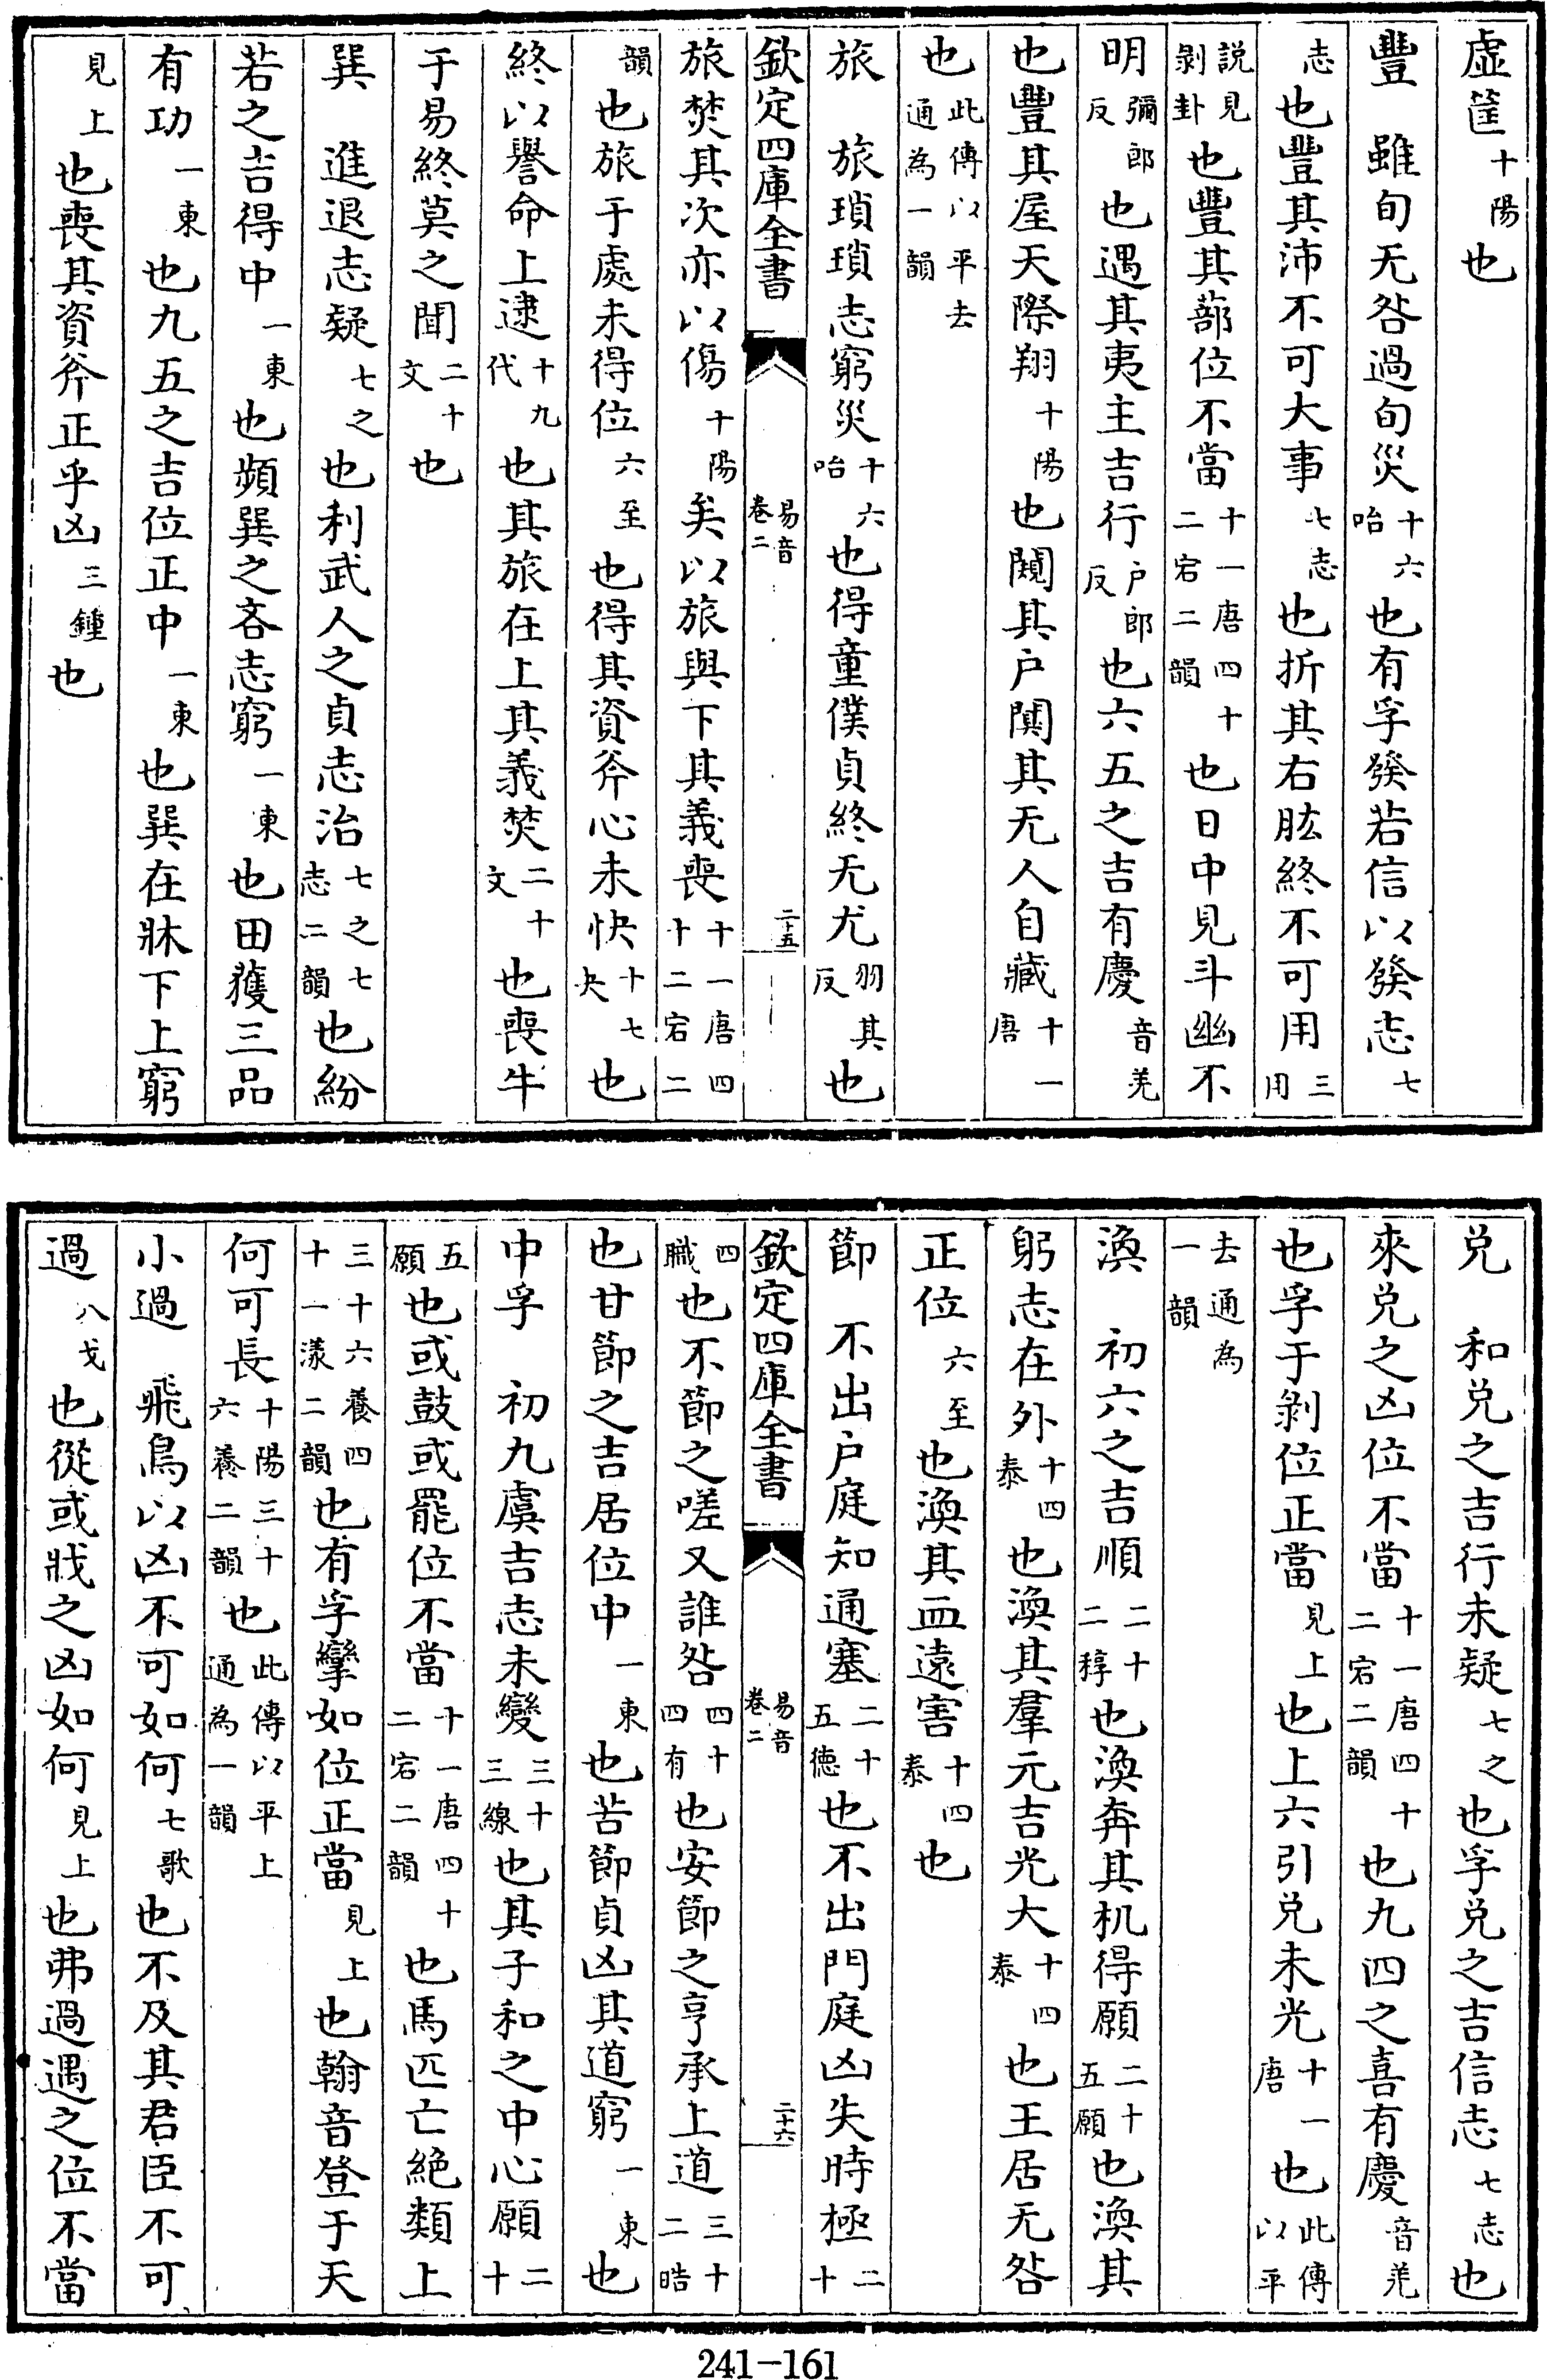 虛筐十陽也
豐　雖旬无咎過旬災十六咍也有孚發若信以發志七
志也豐其沛不可大事七志也折其右肱終不可用三用
說見剝卦也豐其蔀位不當十一唐四十二宕二韻也日中見斗幽不
明彌郎反也遇其夷主吉行户郎反也六五之吉有慶音羌
也豐其屋天際翔十陽也闚其户闃其无人自藏十一唐
也此傳以平去通為一韻
旅　旅瑣瑣志窮災十六咍也得童僕貞終无尤羽其反也
欽定四庫全書　易音卷二　二十五
旅焚其次亦以傷十陽矣以旅與下其義喪十一唐四十二宕二
韻也旅于處未得位六至也得其資斧心未快十七夬也
終以譽命上逮十九代也其旅在上其義焚二十文也喪牛
于易終莫之聞二十文也
巽　進退志疑七之也利武人之貞志治七之七志二韻也紛
若之吉得中一東也頻巽之吝志窮一東也田獲三品
有功一東也九五之吉位正中一東也巽在牀下上窮
見上也喪其資斧正乎凶三鍾也
兌　和兌之吉行未疑七之也孚兌之吉信志七志也
來兌之凶位不當十一唐四十二宕二韻也九四之喜有慶音羌
也孚于剝位正當見上也上六引兌未光十一唐也此傳以平
去通為一韻
渙　初六之吉順二十二稕也渙奔其机得願二十五願也渙其
躬志在外十四泰也渙其羣元吉光大十四泰也王居无咎
正位六至也渙其血遠害十四泰也
節　不出户庭知通塞二十五德也不出門庭凶失時極二十
欽定四庫全書　易音卷二　二十六
四職也不節之嗟又誰咎四十四有也安節之亨承上道三十二晧
也甘節之吉居位中一東也苦節貞凶其道窮一東也
中孚　初九虞吉志未變三十三線也其子和之中心願二十
五願也或鼓或罷位不當十一唐四十二宕二韻也馬匹亡絕類上
三十六養四十一漾二韻也有孚攣如位正當見上也翰音登于天
何可長十陽三十六養二韻也此傳以平上通為一韻
小過　飛鳥以凶不可如何七歌也不及其君臣不可
過八戈也從或戕之凶如何見上也弗過遇之位不當
241-161